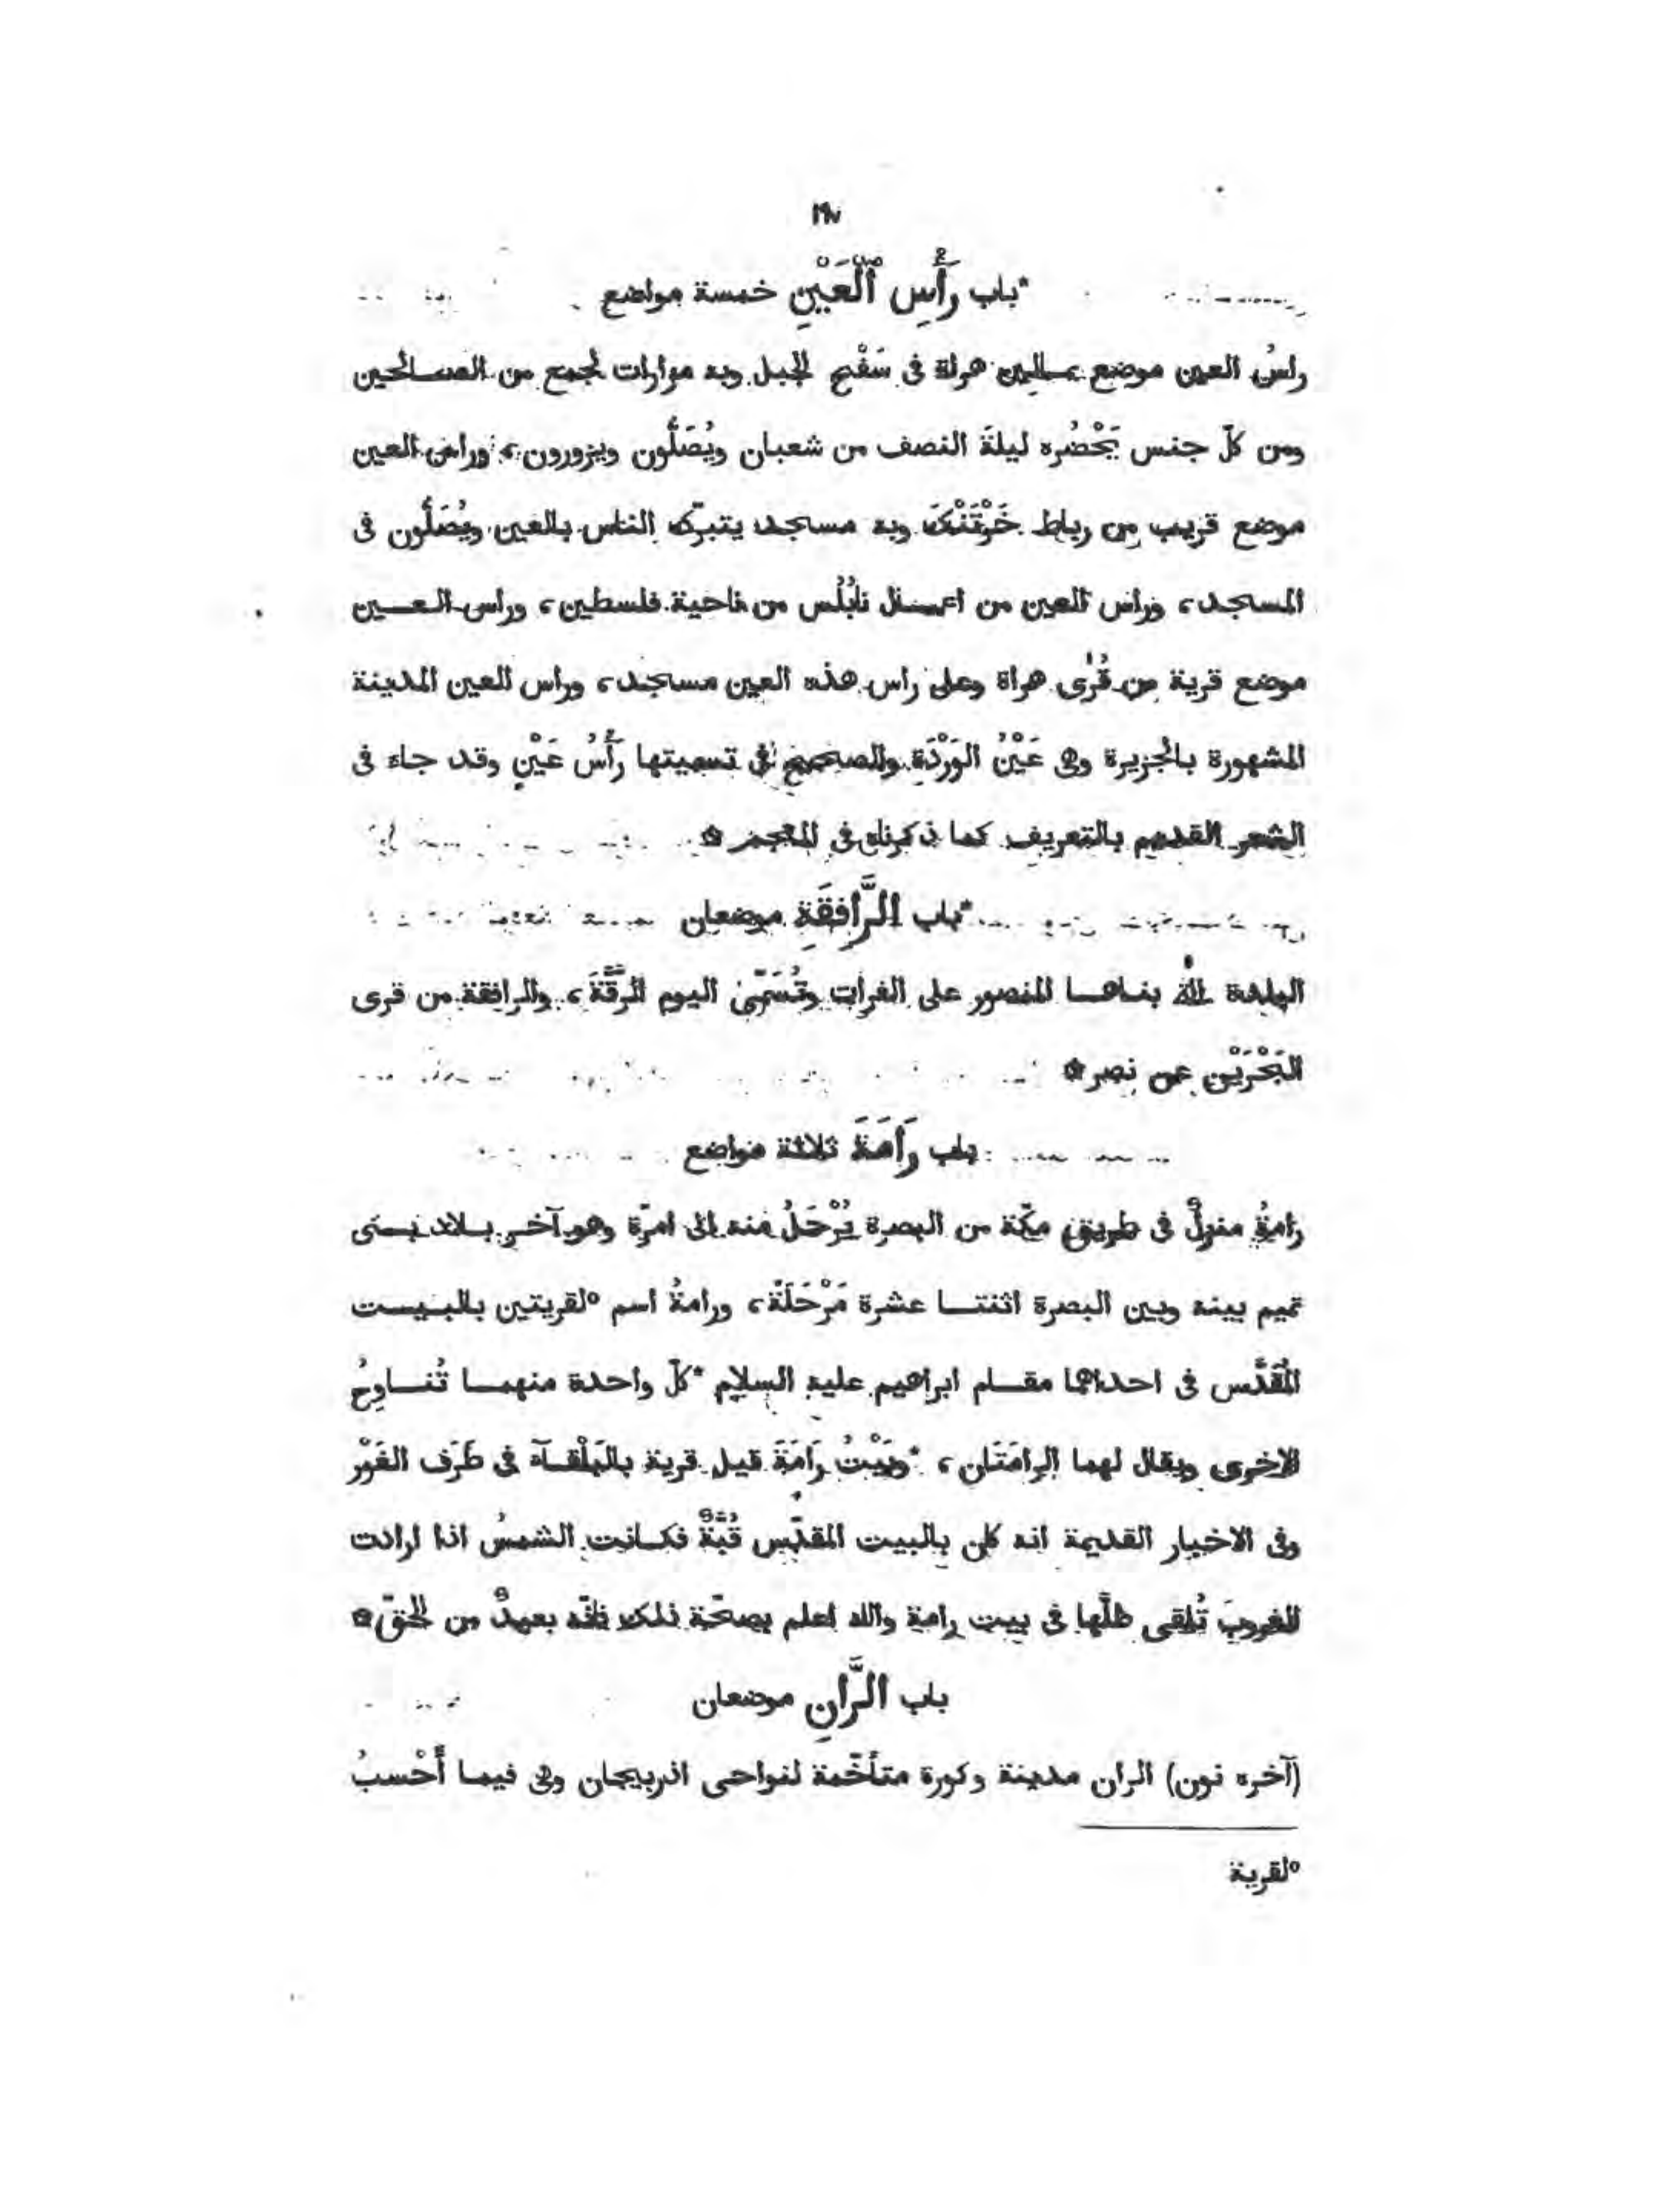 ١٩٧
*باب رَأْسِ ٱلْعَيْنِ خمسة مواضع
راسُ العين موضع بمالين هراة فى سَفْح الجبل وبه مزارات لجمع من الصالحين
ومن كلّ جنس يَحْضُره ليلةَ النصف من شعبان ويُصَلُّون ويزورون، وراس العين
موضع قريب من رباط خَرْتَنْكَ وبه مسجد يتبرّك الناس بالعين ويُصَلُّون فى
المسجد، وراس العين من اعمال نابُلُس من ناحية فلسطين، وراس العين
موضع قرية من قُرَى هراة وعلى راس هذه العين مسجد، وراس العين المدينة
المشهورة بالجزيرة وهى عَيْنُ الوَرْدَة والصحيح فى تسميتها رَأْسُ عَيْنٍ وقد جاء فى
الشعر القديم بالتعريف كما ذكرناه فى المعجم ۞
*باب الرَّافِقَةِ موضعان
البلدة الله بناها المنصور على الفرات وتُسَمَّى اليوم الرَّقَّةَ، والرافقة من قرى
البَحْرَيْن عن نصر ۞
باب رَامَةَ ثلاثة مواضع
رامةُ منزلٌ فى طريق مكّة من البصرة يُرْحَلُ منه الى امرّة وهو آخر بلاد بنى
تميم بينه وبين البصرة اثنتا عشرة مَرْحَلَةً، ورامةُ اسم °لقريتين بالبيت
المُقَدَّس فى احداهما مقام ابراهيم عليه السلام *كلّ واحدة منهما تُنَاوِحُ
الاخرى ويقال لهما الرامَتَان، *وبَيْتُ رَامَةَ قيل قرية بالبَلْقآء فى طَرَف الغَوْر
وفى الاخبار القديمة انه كان بالبيت المقدّس قُبَّةٌ فكانت الشمسُ اذا ارادت
الغروبَ تُلقى ظلَّها فى بيت رامة والله اعلم بصحّة ذلك فانّه بعيدٌ من الحقّ ۞
باب الرَّانِ موضعان
(آخره نون) الران مدينة وكورة متأخّمة لنواحى اذربيجان وهى فيما أَحْسبُ
°لقرية